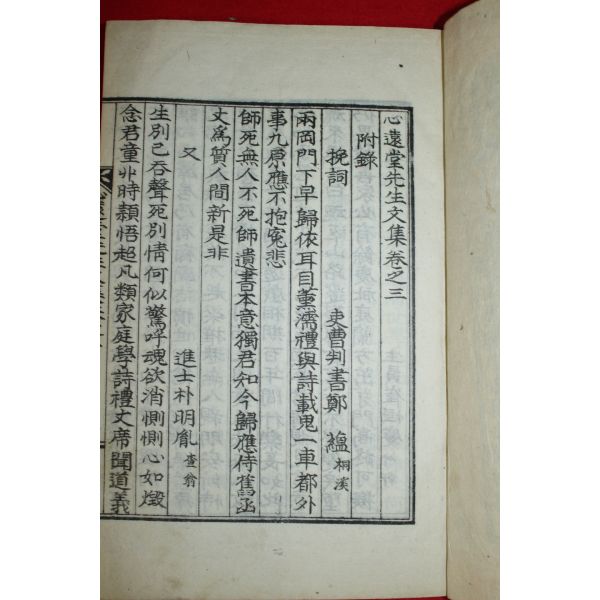 心遠堂先生文集卷之三
附錄
挽詞 吏曹判書鄭 蘊 桐溪
兩岡門下早歸依耳目薰濡禮與詩載鬼一車都外
事九原應不抱冤悲
師死無人不死師遺書本意獨君知今歸應侍舊函
丈爲質人間新是非
又 進士朴明胤 查翁
生別已吞聲死別情何似驚呼魂欲消惻惻心如燬
念君童丱時穎悟超凡類家庭學詩禮丈席聞道義